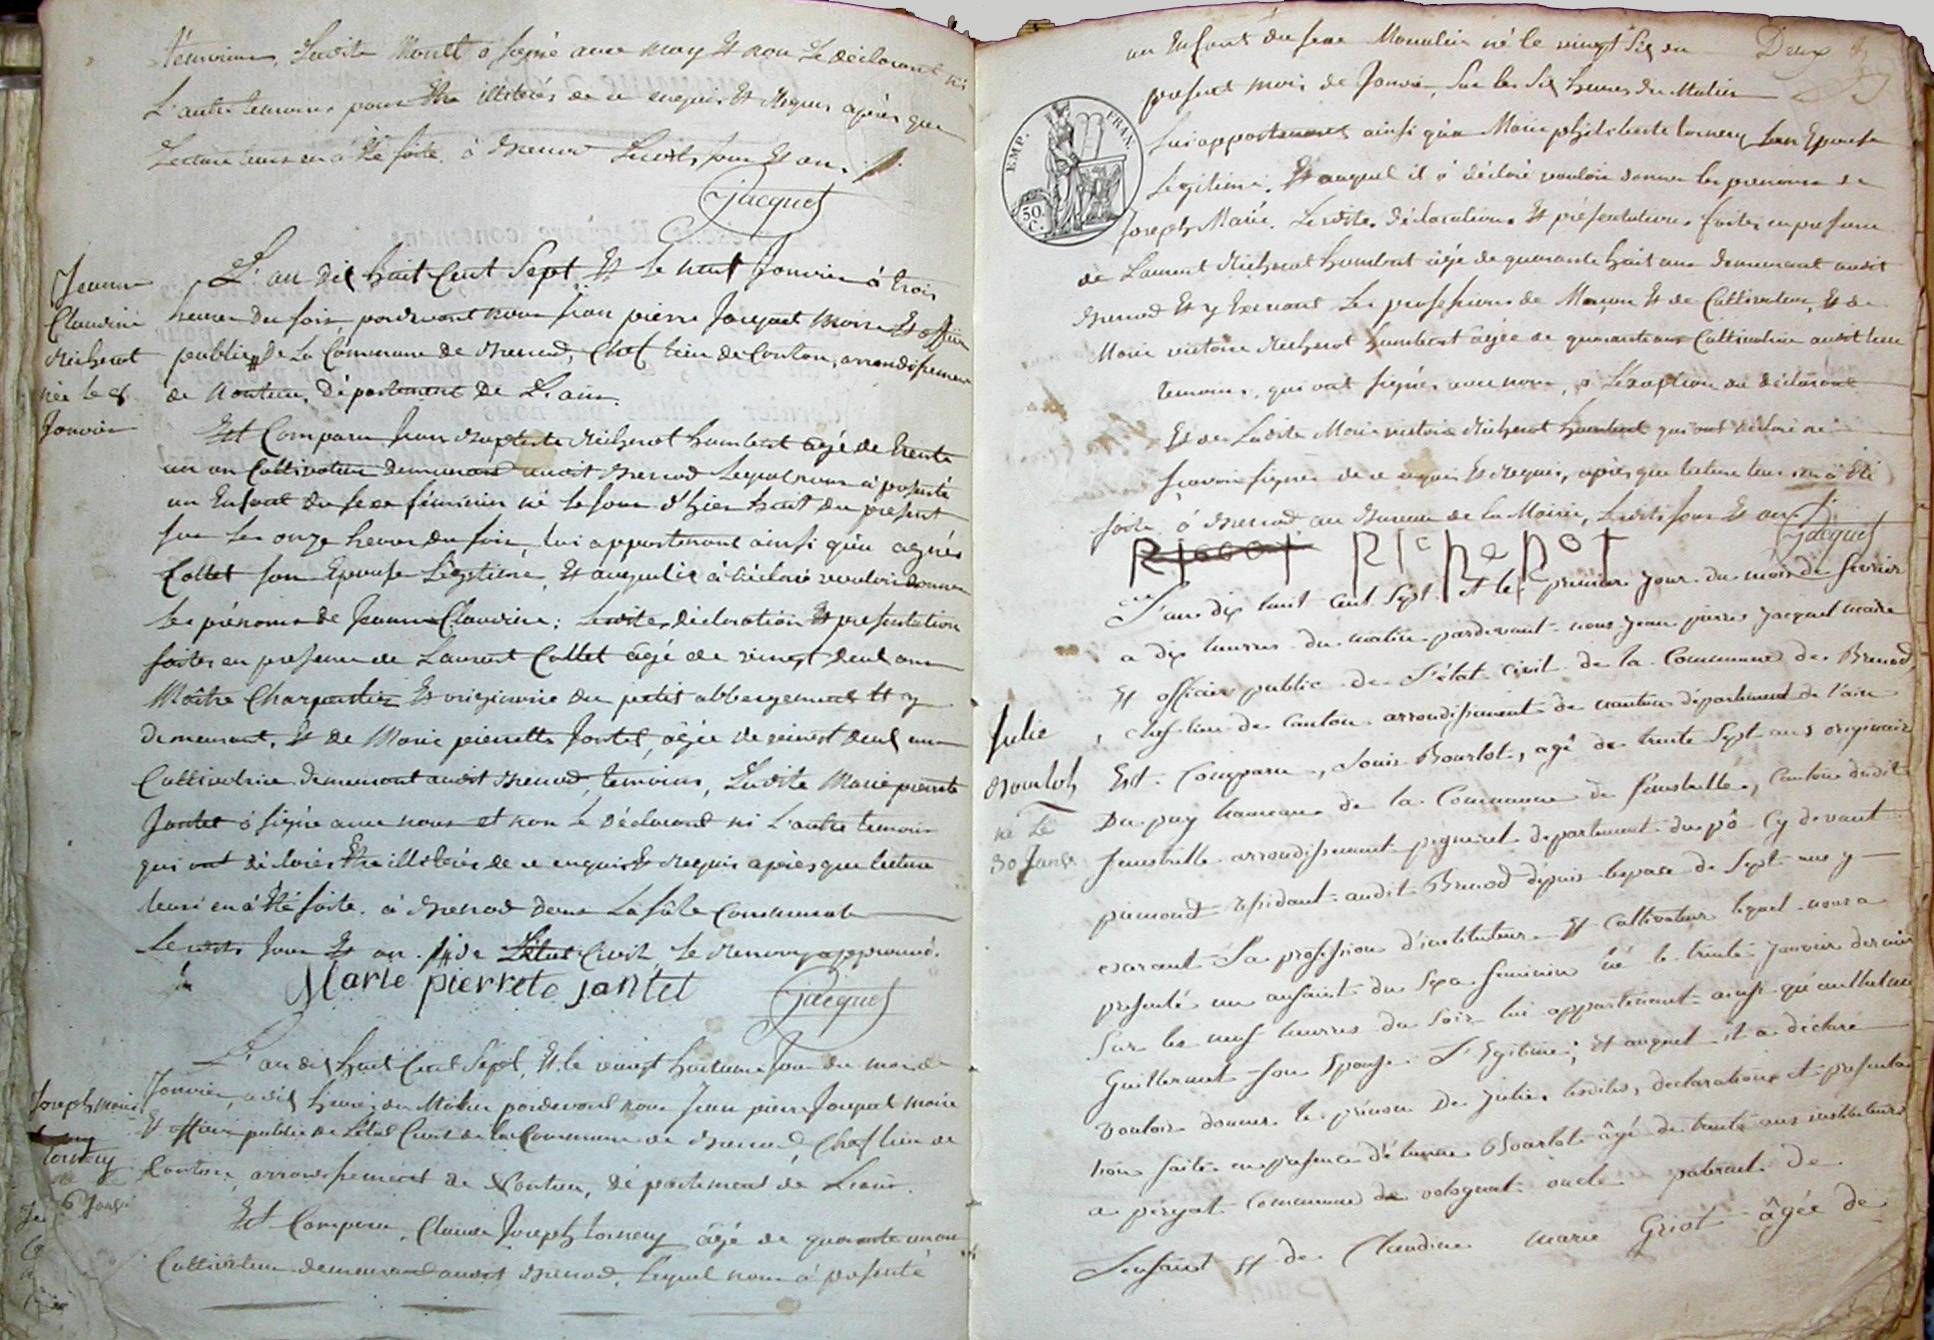 témoins, Ladite Montel a signé avec moy Et non Le déclarant ni
L'autre temoins pour Etre illiterés de ce enquis Et Requis après que
Lecture leurs en a Eté faite. à Brenod Lesdits jour Et an.
Jacquet
Jeanne
Claudine
Richerot
née le 8
Janvier
L'an dix huit Cent Sept, Et le neuf Janvier à trois
heures du soir, pardevant nous jean pierre Jacquet Maire Et officier
publics # De La Commune de Brenod, Chef lieu de Canton, arrondissement
de Nantua, Département de L'ain.
Est Comparu Jean Baptiste Richerot humbert agé de trente
un an Cultivateur demeurant audit Brenod Lequel nous a présenté
un Enfant du sexe féminin né le jour d'hier huit du present
sur Les onze heures du soir, lui appartenant ainsi qu'a agnès
Collet son Epouse Légitime, Et auquel il a déclaré vouloir donner
Les prénoms de Jeanne Claudine; Lesdites déclaration Et présentation
faites en présence de Laurent Collet agé de vingt deux ans
Maître Charpentier Et originaire du petit abbergement Et y
demeurant, Et de Marie pierrette Jantet, agée de vingt deux ans
Cultivatrice demeurant audit Brenod, temoins, Ladite Marie pierrette
Jantet a signé avec nous et non Le déclarant ni L'autre temoin
qui ont déclarés Etre illiterés de ce enquis Et Requis après que lecture
leurs en a Eté faite. à Brenod dans La sale Communale
Lesdits Jour Et an. # de L'état Civil Le Renvoy approuvé.
Marie pierrete jantet
Jacquet
Joseph marie
tornery
6 Janvi
L'an dix huit Cent Sept, Et le vingt huitieme Jour du mois de
Janvier, à dix heures du Matin pardevant nous Jean pierre Jacquet maire
Et officier public de L'état Civil de la Commune de Brenod, Chef lieu de
Canton, arrondissement de Nantua, département de L'ain.
Est Comparu, Claude Joseph tornery âgé de quarante un an
Cultivateur demeurant audit Brenod, Lequel nous à présenté
un Enfant du sexe Masculin né le vingt six du
Deux
présent mois de Janvier, sur les six heures du Matin
EMP. FRAN.
50 C.
lui appartenant ainsi qu'a Marie tornery Son Epouse
Legitime, Et auquel il a déclaré vouloir donner les prénoms de
Joseph Marie. Lesdites déclarations Et présentations faites en présence
de Laurent Richerot humbert agé de quarante huit ans demeurant audit
Brenod Et y Exercant Les professions de Maçon Et de Cultivateur, Et de
Marie victoire Richerot humbert agée de quarante ans Cultivatrice audit lieu
temoins, qui ont signés avec nous, à L'exception du déclarant
Et de Ladite Marie victoire Richerot humbert qui ont déclaré ne
scavoir signer de ce enquis Et Requis, après que lecture leur en a Eté
faite à Brenod au Bureau de la Mairie, Lesdits jour Et an.
Jacquet
RIcHeROT
Julie
Bourlot
né Le
30 Janvr
L'an dix huit cent Sept et le premier jour du mois de fevrier
a dix heures du matin pardevant nous jean pierre jacquet maire
Et officier public de L'état civil de la Commune de Brenod
chef lieu de canton arrondissement de nantua département de l'ain
Est Comparu, Louis Bourlot, agé de trente Sept ans originaire
Du puy hameau de la Commune de fenestrelle, Canton dudit
fenestrelle arrondissement pigneret département du pô cy devant
piemond résidant audit Brenod depuis lespace de Sept ans y
exercant La profession d'instituteur Et cultivateur lequel nous a
présenté un enfant du Sexe feminin né le trente janvier dernier
Sur les neuf heures du Soir lui appartenant ainsi qu'a
Guillermet son Epouse L'Egitime; Et auquel il a déclaré
vouloir donner le prénom De julie, lesdites, declarations et présenta
tion faites en présence d'étienne Bourlot âgé de trente ans instituteur
a peryat commune de volognat oncle paternel de
L'enfant Et de Claudine marie Griot âgée de